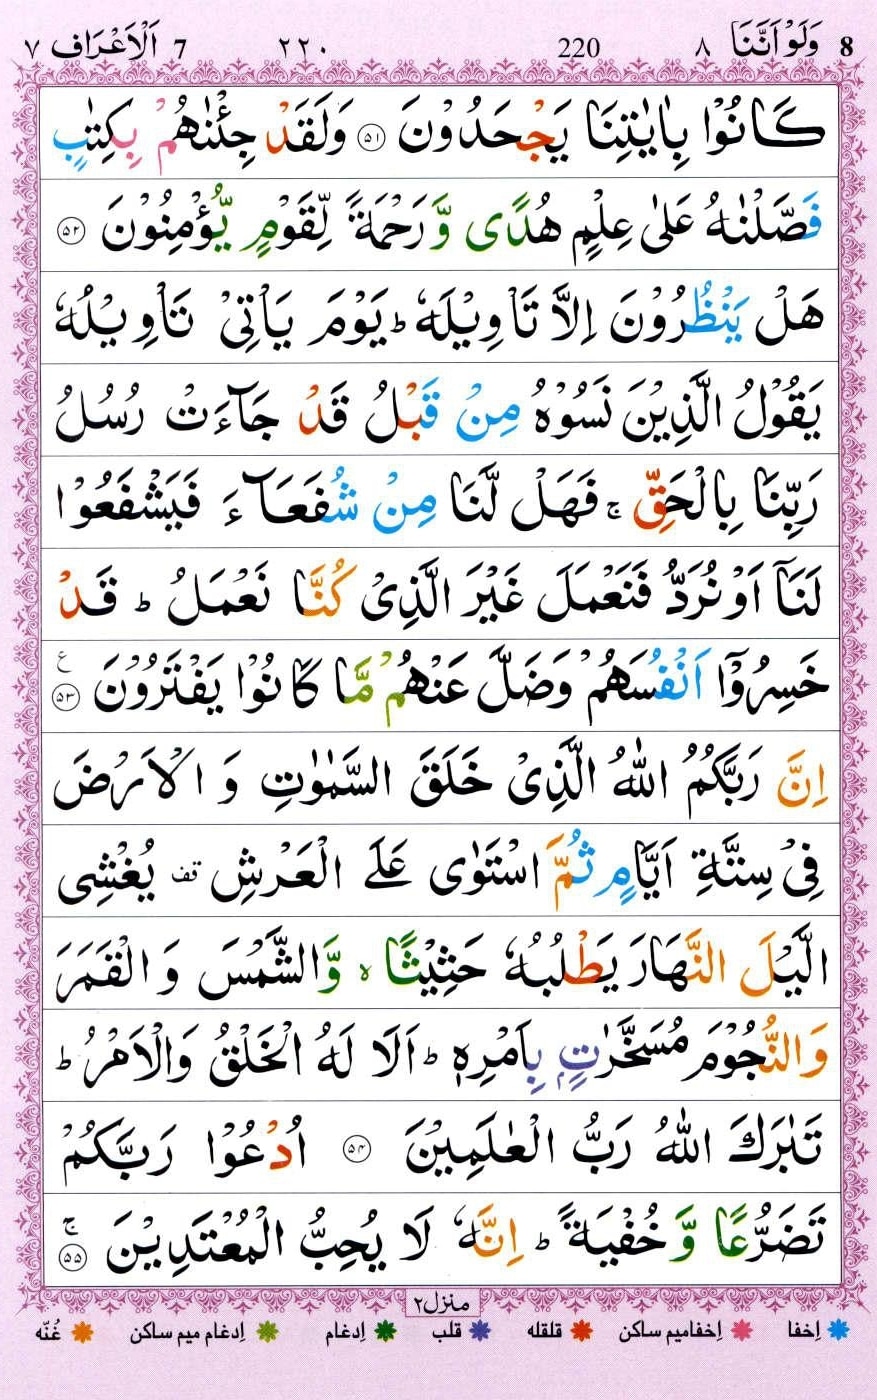 8 وَلَوْ اَنَّنَا ٨ 220 ٢٢٠ 7 اَلْاَعْرَاف ٧
كَانُوْا بِاٰيٰتِنَا يَجْحَدُوْنَ ﴿۵۱﴾ وَلَقَدْ جِئْنٰهُمْ بِكِتٰبٍ
فَصَّلْنٰهُ عَلٰى عِلْمٍ هُدًى وَّرَحْمَةً لِّقَوْمٍ يُّؤْمِنُوْنَ ﴿۵۲﴾
هَلْ يَنْظُرُوْنَ اِلَّا تَاْوِيْلَهٗ ؕ يَوْمَ يَاْتِىْ تَاْوِيْلُهٗ
يَقُوْلُ الَّذِيْنَ نَسُوْهُ مِنْ قَبْلُ قَدْ جَآءَتْ رُسُلُ
رَبِّنَا بِالْحَقِّ ۚ فَهَلْ لَّنَا مِنْ شُفَعَآءَ فَيَشْفَعُوْا
لَنَاۤ اَوْ نُرَدُّ فَنَعْمَلَ غَيْرَ الَّذِىْ كُنَّا نَعْمَلُ ؕ قَدْ
خَسِرُوْۤا اَنْفُسَهُمْ وَضَلَّ عَنْهُمْ مَّا كَانُوْا يَفْتَرُوْنَ ﴿۵۳﴾ ع
اِنَّ رَبَّكُمُ اللّٰهُ الَّذِىْ خَلَقَ السَّمٰوٰتِ وَ الْاَرْضَ
فِىْ سِتَّةِ اَيَّامٍ ثُمَّ اسْتَوٰى عَلَى الْعَرْشِ قف يُغْشِى
الَّيْلَ النَّهَارَ يَطْلُبُهٗ حَثِيْثًا ۙ وَّالشَّمْسَ وَ الْقَمَرَ
وَالنُّجُوْمَ مُسَخَّرٰتٍۢ بِاَمْرِهٖ ؕ اَلَا لَهُ الْخَلْقُ وَالْاَمْرُ ؕ
تَبٰرَكَ اللّٰهُ رَبُّ الْعٰلَمِيْنَ ﴿۵۴﴾ اُدْعُوْا رَبَّكُمْ
تَضَرُّعًا وَّ خُفْيَةً ؕ اِنَّهٗ لَا يُحِبُّ الْمُعْتَدِيْنَ ۚ ﴿۵۵﴾
منزل٢
اِخفا اِخفامیم ساکن قلقله قلب اِدغام اِدغام میم ساکن غُنّه